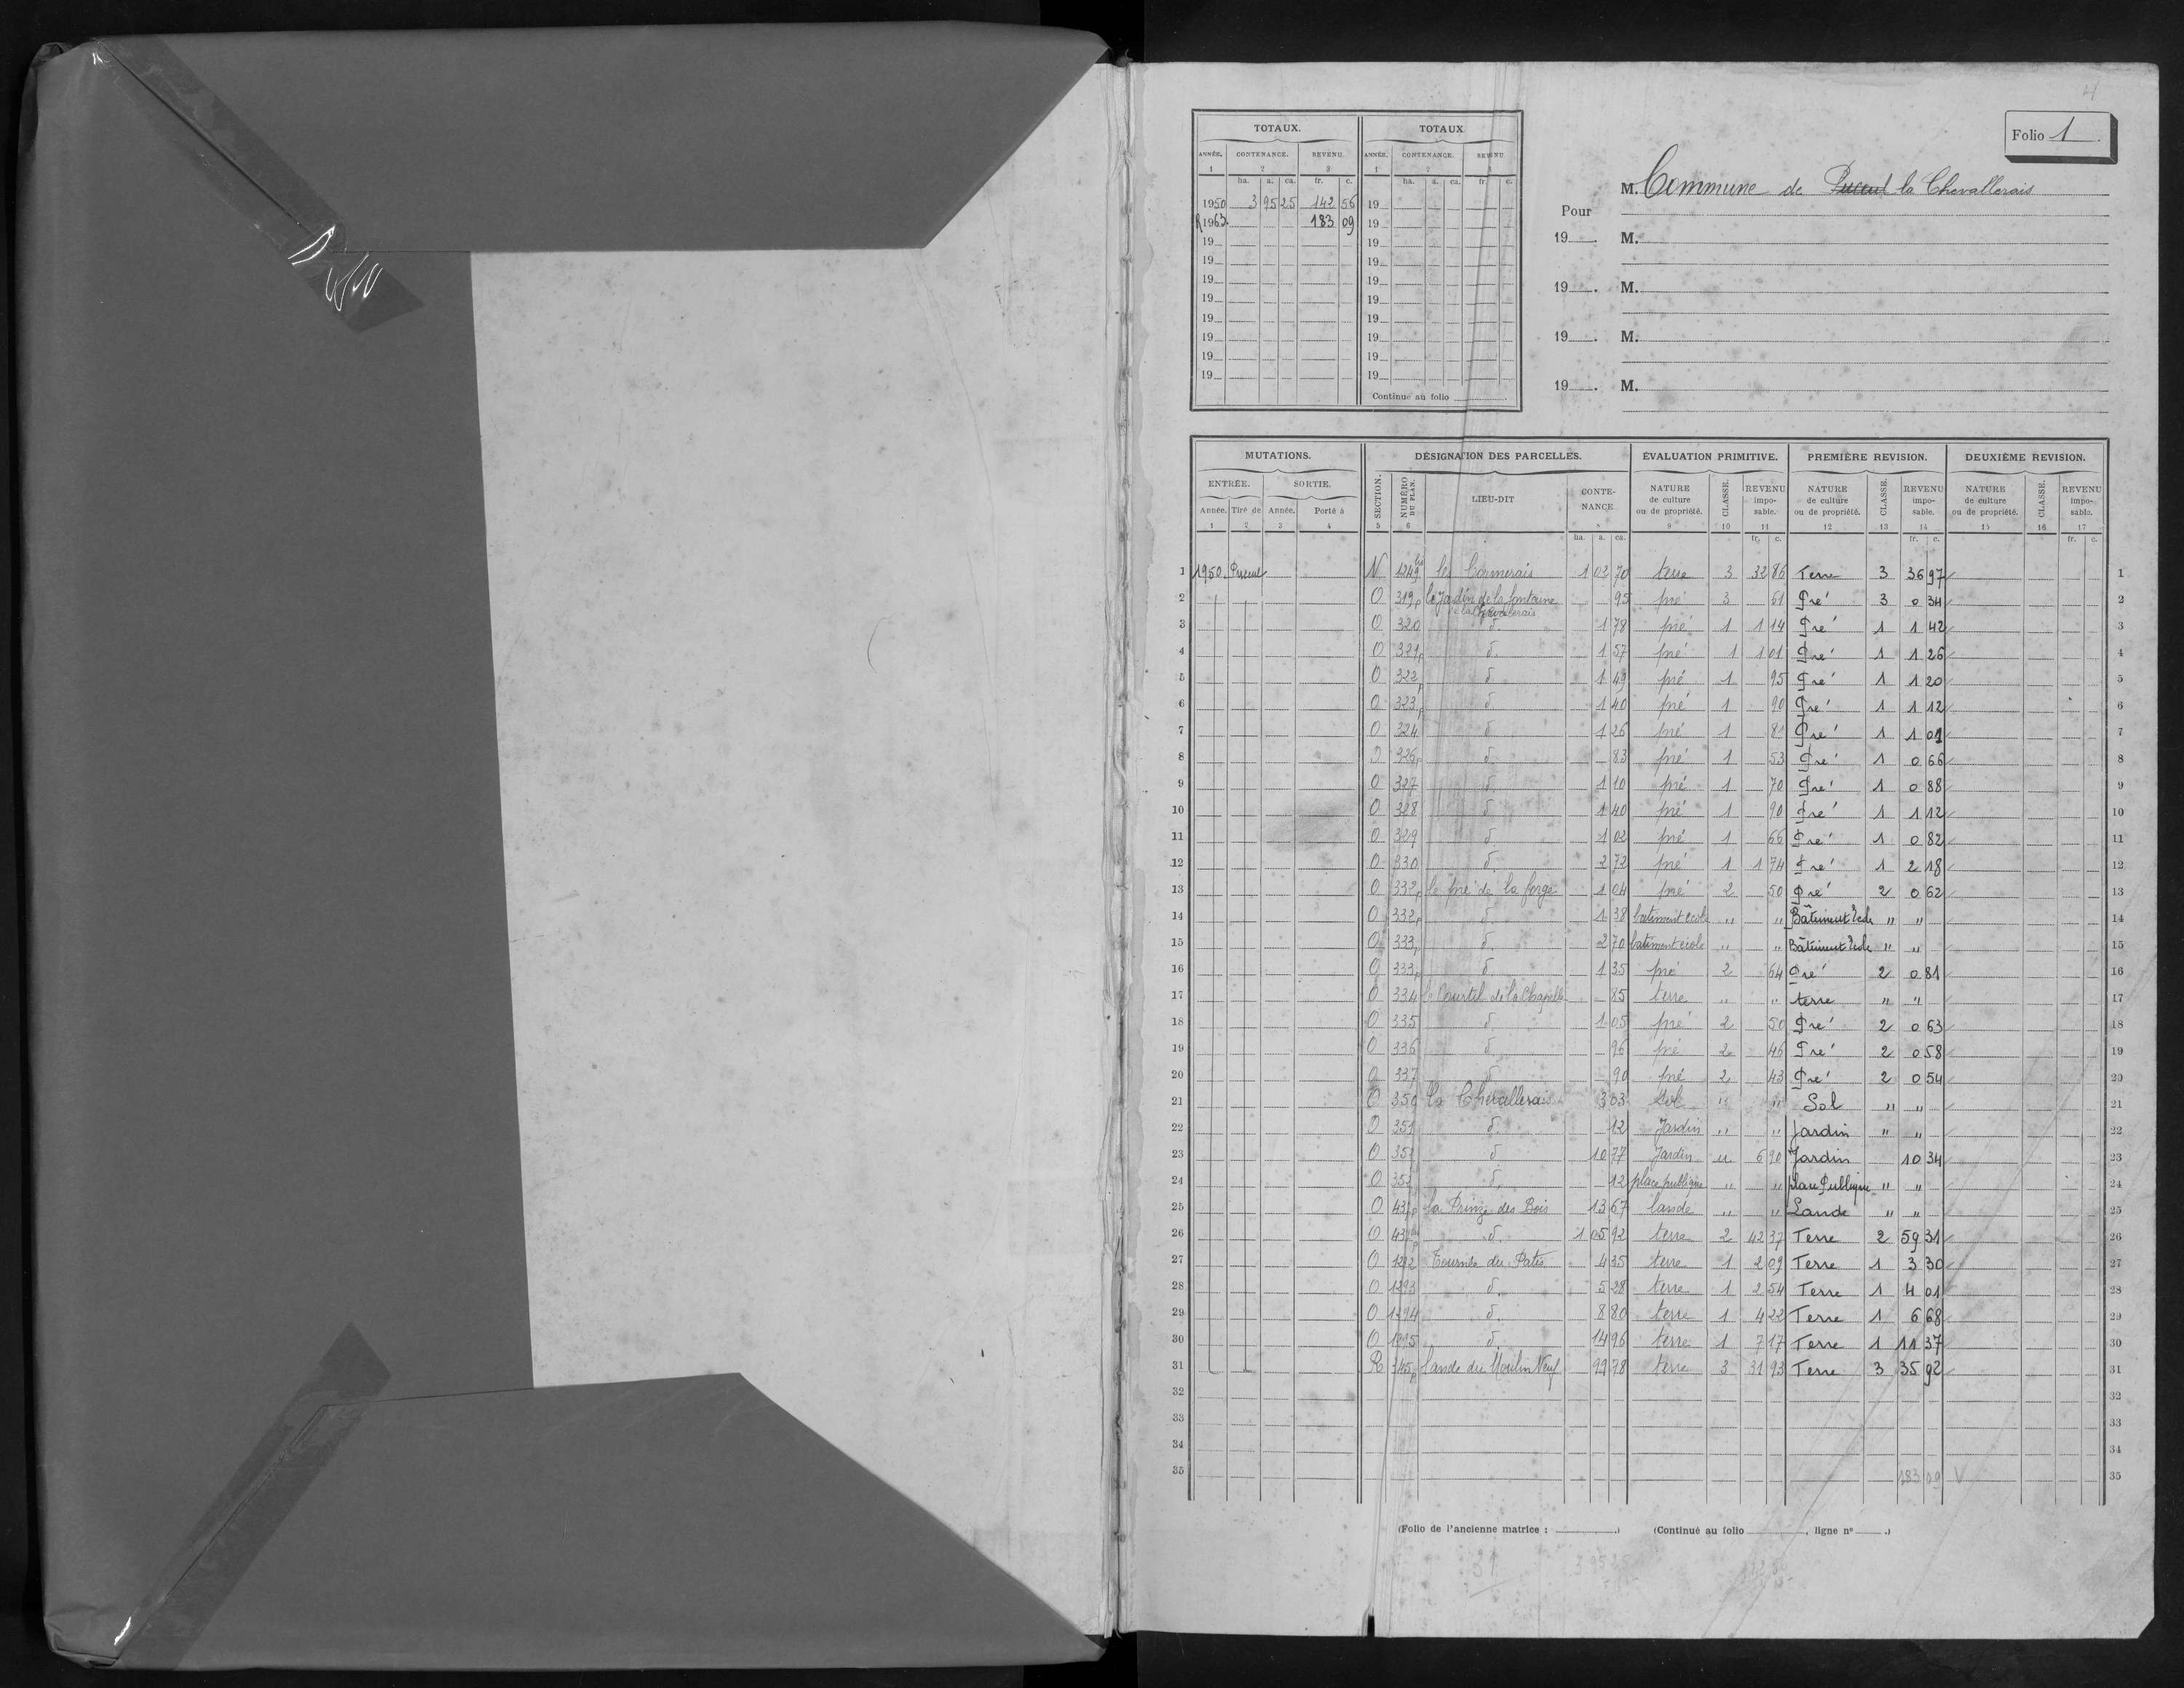 4
Folio 1.
TOTAUX. TOTAUX
ANNÉE. CONTENANCE. REVENU. ANNÉE. CONTENANCE. REVENU
1 2 3 1 2 3
ha. a. ca. fr. c. ha. a. ca. fr. c.
1950 3 95 25 142 56 19
R1963 183 09 19
19 19
19 19
19 19
19 19
19 19
19 19
19 19
19 19
Continué au folio
M. Commune de Puceul la Chevallerais
Pour
19 . M.
19 . M.
19 . M.
19 . M.
MUTATIONS. DÉSIGNATION DES PARCELLES. ÉVALUATION PRIMITIVE. PREMIÈRE REVISION. DEUXIÈME REVISION.
ENTRÉE. SORTIE. SECTION. NUMÉRO DU PLAN. LIEU-DIT CONTE-NANCE NATURE de culture ou de propriété. CLASSE. REVENU impo-sable. NATURE de culture ou de propriété. CLASSE. REVENU impo-sable. NATURE de culture ou de propriété. CLASSE. REVENU impo-sable.
Année. Tiré de Année. Porté à
1 2 3 4 5 6 7 8 9 10 11 12 13 14 15 16 17
ha. a. ca. fr. c. fr. c. fr. c.
1 1950 Puceul N 1249 bis les Cormerais 1 02 70 terre 3 32 86 Terre 3 36 97 1
2 O 319p le Jardin de la fontaine de la Chevallerais 95 pré 3 61 Pré 3 0 34 2
3 O 320 d° 1 78 pré 1 1 14 Pré 1 1 42 3
4 O 321p d° 1 57 pré 1 1 01 Pré 1 1 26 4
5 O 322p d° 1 49 pré 1 95 Pré 1 1 20 5
6 O 323p d° 1 40 pré 1 90 Pré 1 1 12 6
7 O 324 d° 1 26 pré 1 81 Pré 1 1 01 7
8 O 326p d° 83 pré 1 53 Pré 1 0 66 8
9 O 327 d° 1 10 pré 1 70 Pré 1 0 88 9
10 O 328 d° 1 40 pré 1 90 Pré 1 1 12 10
11 O 329 d° 1 02 pré 1 66 Pré 1 0 82 11
12 O 330 d° 2 72 pré 1 1 74 Pré 1 2 18 12
13 O 332p le pré de la forge 1 04 pré 2 50 Pré 2 0 62 13
14 O 332p d° 1 38 batiment ecole " " Bâtiment Ecole " " 14
15 O 333p d° 2 70 batiment ecole " " Bâtiment Ecole " " 15
16 O 333p d° 1 35 pré 2 64 Pré 2 0 81 16
17 O 334 le Courtil de la Chapelle 85 terre " " terre " " 17
18 O 335 d° 1 05 pré 2 50 Pré 2 0 63 18
19 O 336 d° 96 pré 2 46 Pré 2 0 58 19
20 O 337 d° 90 pré 2 43 Pré 2 0 54 20
21 O 350 la Chevallerais 3 03 Sol " " Sol " " 21
22 O 351 d° 12 Jardin " " Jardin " " 22
23 O d° 10 77 Jardin u 6 90 Jardin 10 34 23
24 O d° 12 place publique " " place Publique " " 24
25 O la Prinze des Bois 13 67 lande " " Lande " " 25
26 O d° 1 05 92 terre 2 42 37 Terre 2 59 31 26
27 O 1292 Tournée du Patis 4 35 terre 1 2 09 Terre 1 3 30 27
28 O 1293 d° 5 28 terre 1 2 54 Terre 1 4 01 28
29 O 1294 d° 8 80 terre 1 4 22 Terre 1 6 68 29
30 O 1295 d° 14 96 terre 1 7 17 Terre 1 11 37 30
31 R lande du Moulin Neuf 99 78 terre 3 31 93 Terre 3 35 92 31
32 32
33 33
34 34
35 183 09 V 35
(Folio de l'ancienne matrice : .) (Continué au folio , ligne n° .)
31 3 95 25